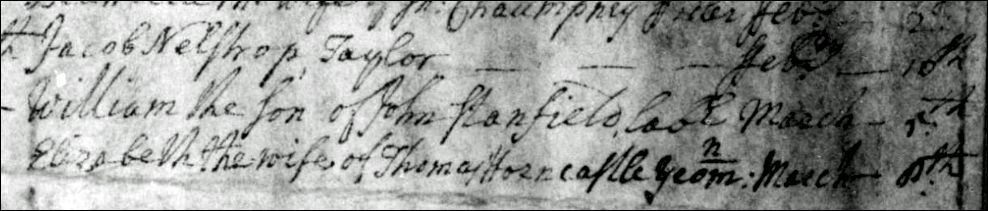 wife of Jno: Chaumphrey Febry 2th
Jacob Nelstrop, Taylor — — — Febry — 10th
William the son of John Stanfield, lab March — 5th
Elizabeth the wife of Thomas Horncastle yeomn: March 8th